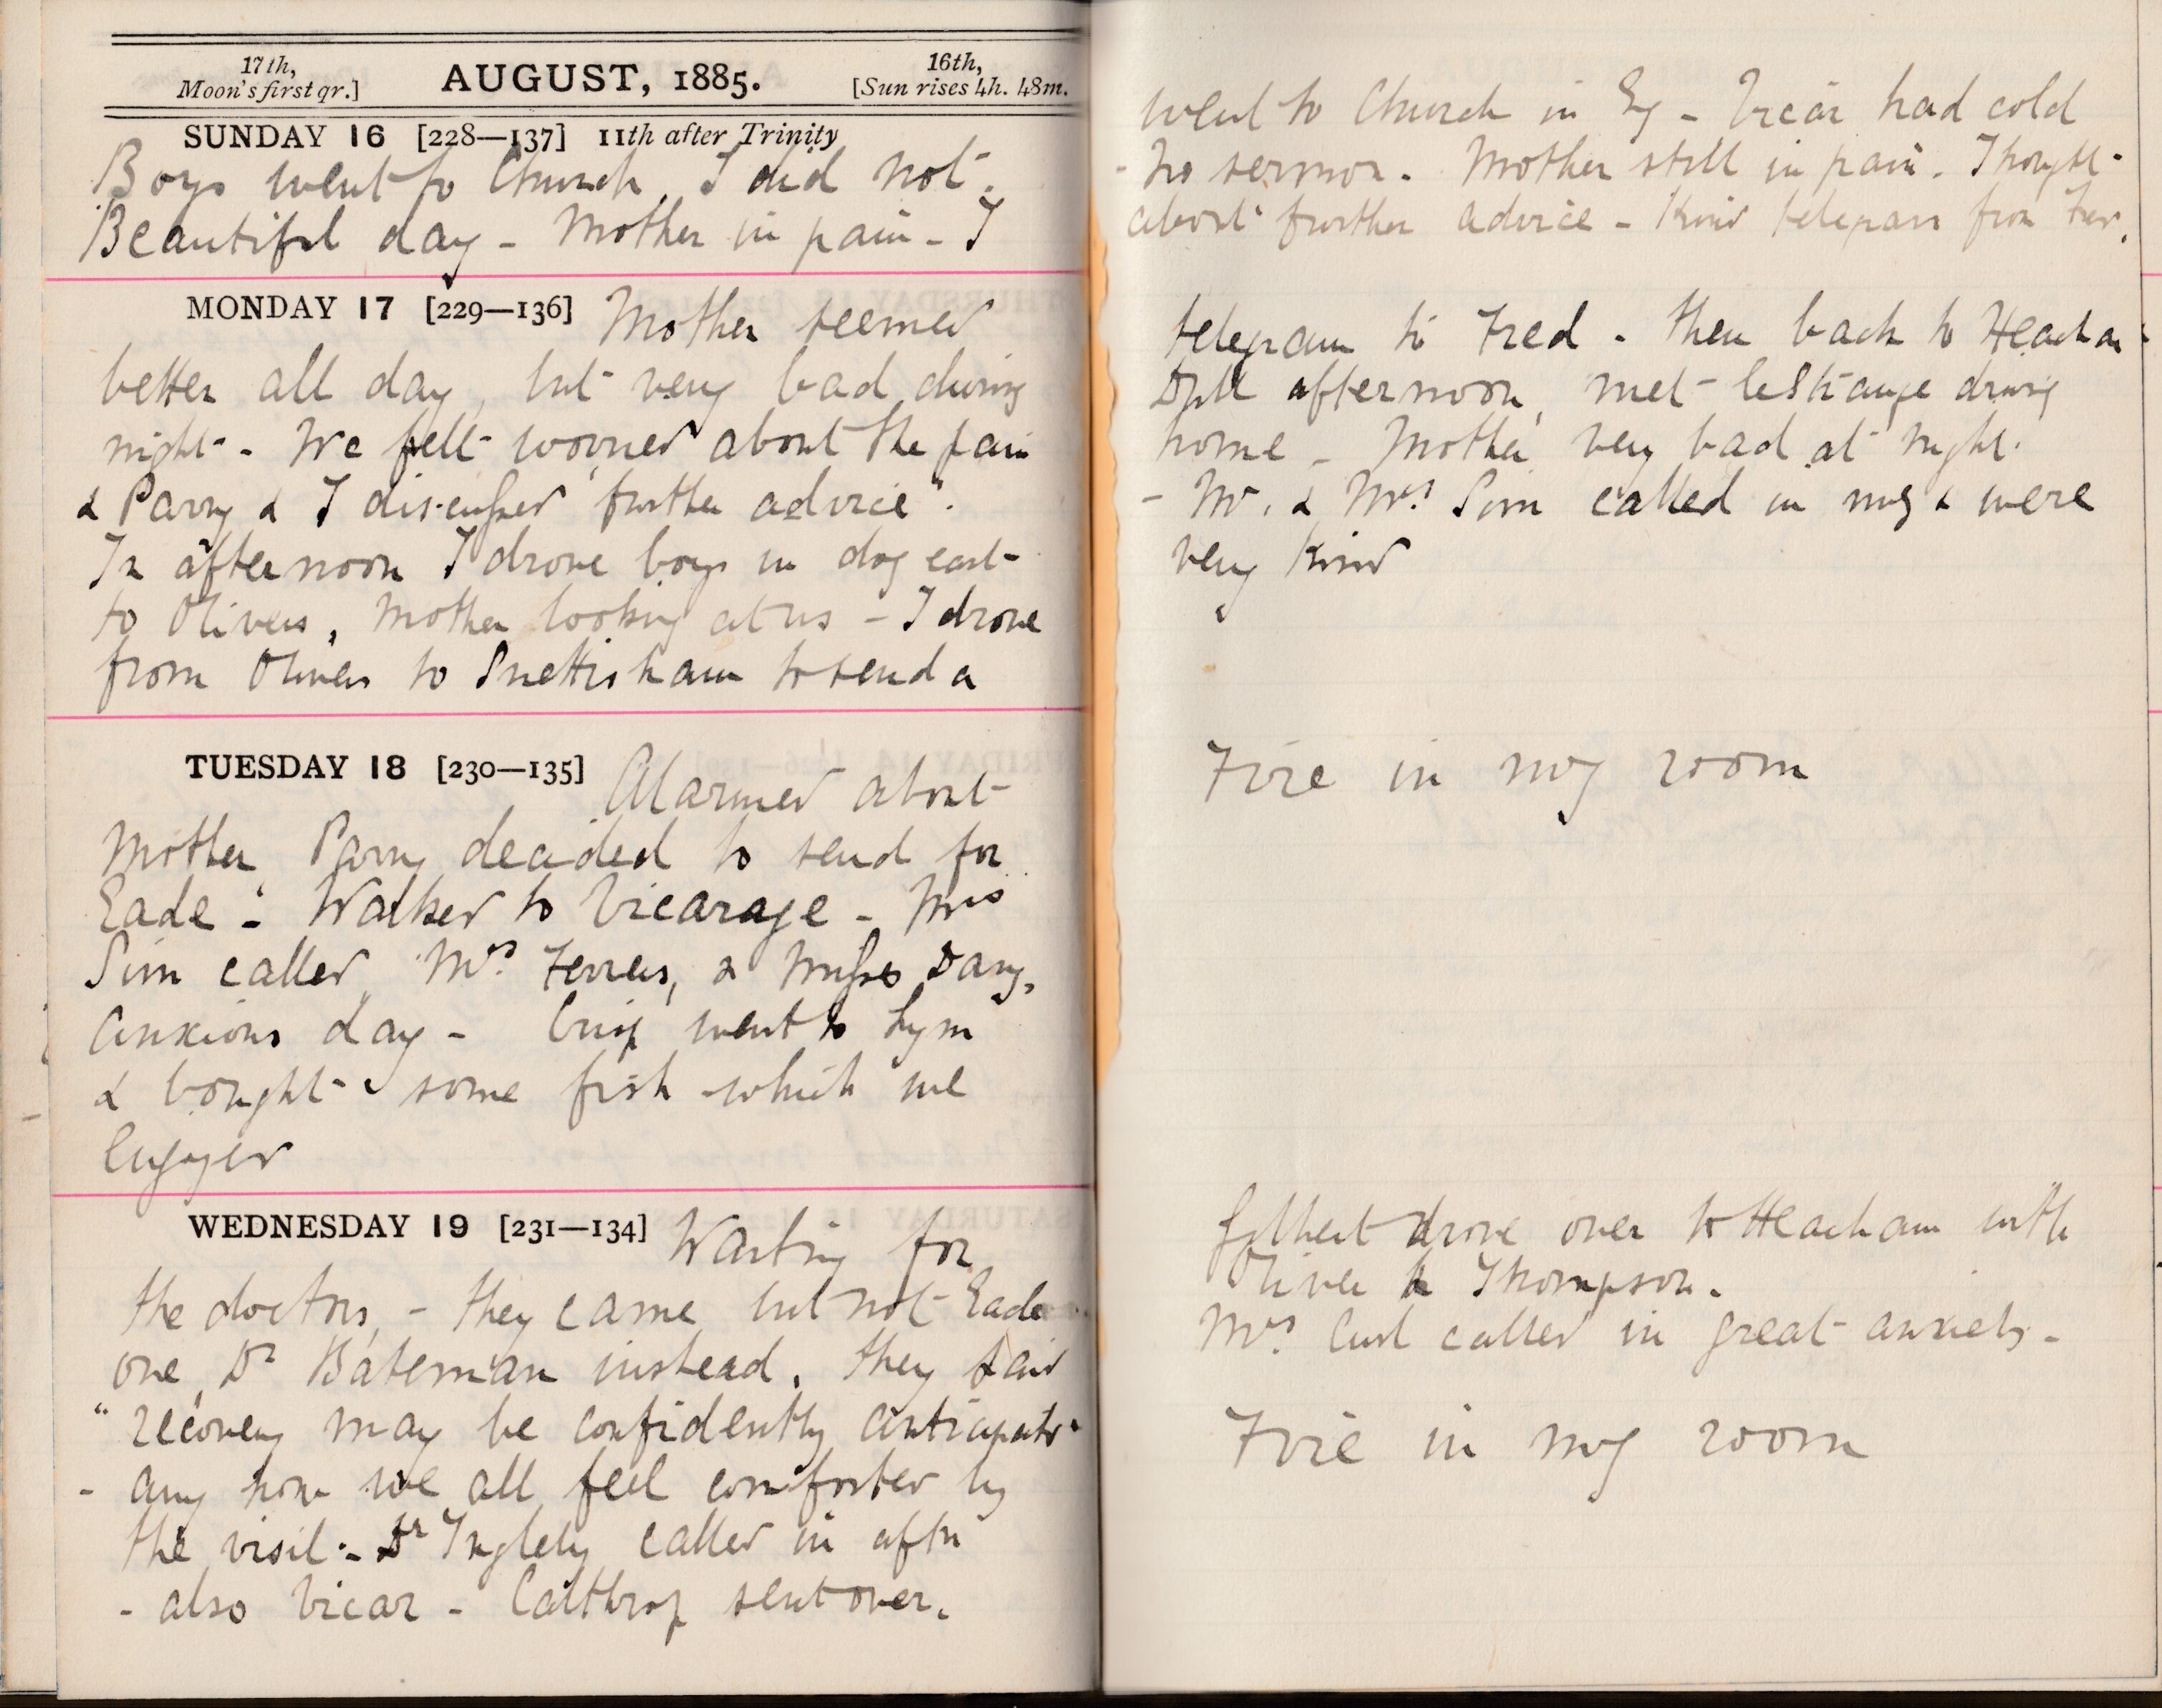 17th,
Moon's first qr.]
AUGUST, 1885.
16th,
[Sun rises 4h. 48m.
SUNDAY 16 [228—137] 11th after Trinity
Boys went to Church, I did not.
Beautiful day - Mother in pain - I
MONDAY 17 [229—136] Mother seemed
better all day, but very bad during
night - We felt worried about the pain
& Parry & I discussed "further advice".
In afternoon I drove boys in dog cart
to Olivers, Mother looking at us - I drove
from Olivers to Snettisham to send a
TUESDAY 18 [230—135] Alarmed about
Mother. Parry decided to send for
Eade - Walked to Vicarage - Mrs
Sim called, Mrs. Ferrers, & Misses Davy.
Anxious day - Crisp went to Lynn
& bought some fish which we
enjoyed
WEDNESDAY 19 [231—134] Waiting for
the doctors, - they came but not Eade
one, Dr Bateman instead. They said
"recovery may be confidently anticipated"
- any how we all feel comforted by
the visit - Dr Ingleby called in aftn
- also Vicar - Calthrop sent over.
went to Church in Eg - Vicar had cold
- No sermon. Mother still in pain. Thought
about further advice - Kind telegram from Fred.
telegram to Fred - then back to Heacham
Dull afternoon, met leStrange driving
home - Mother very bad at night.
- Mr. & Mrs. Sim called in mg & were
very kind
Fire in my room
Gilbert drove over to Heacham with
Oliver & Thompson.
Mrs. Curl called in great anxiety -
Fire in my room